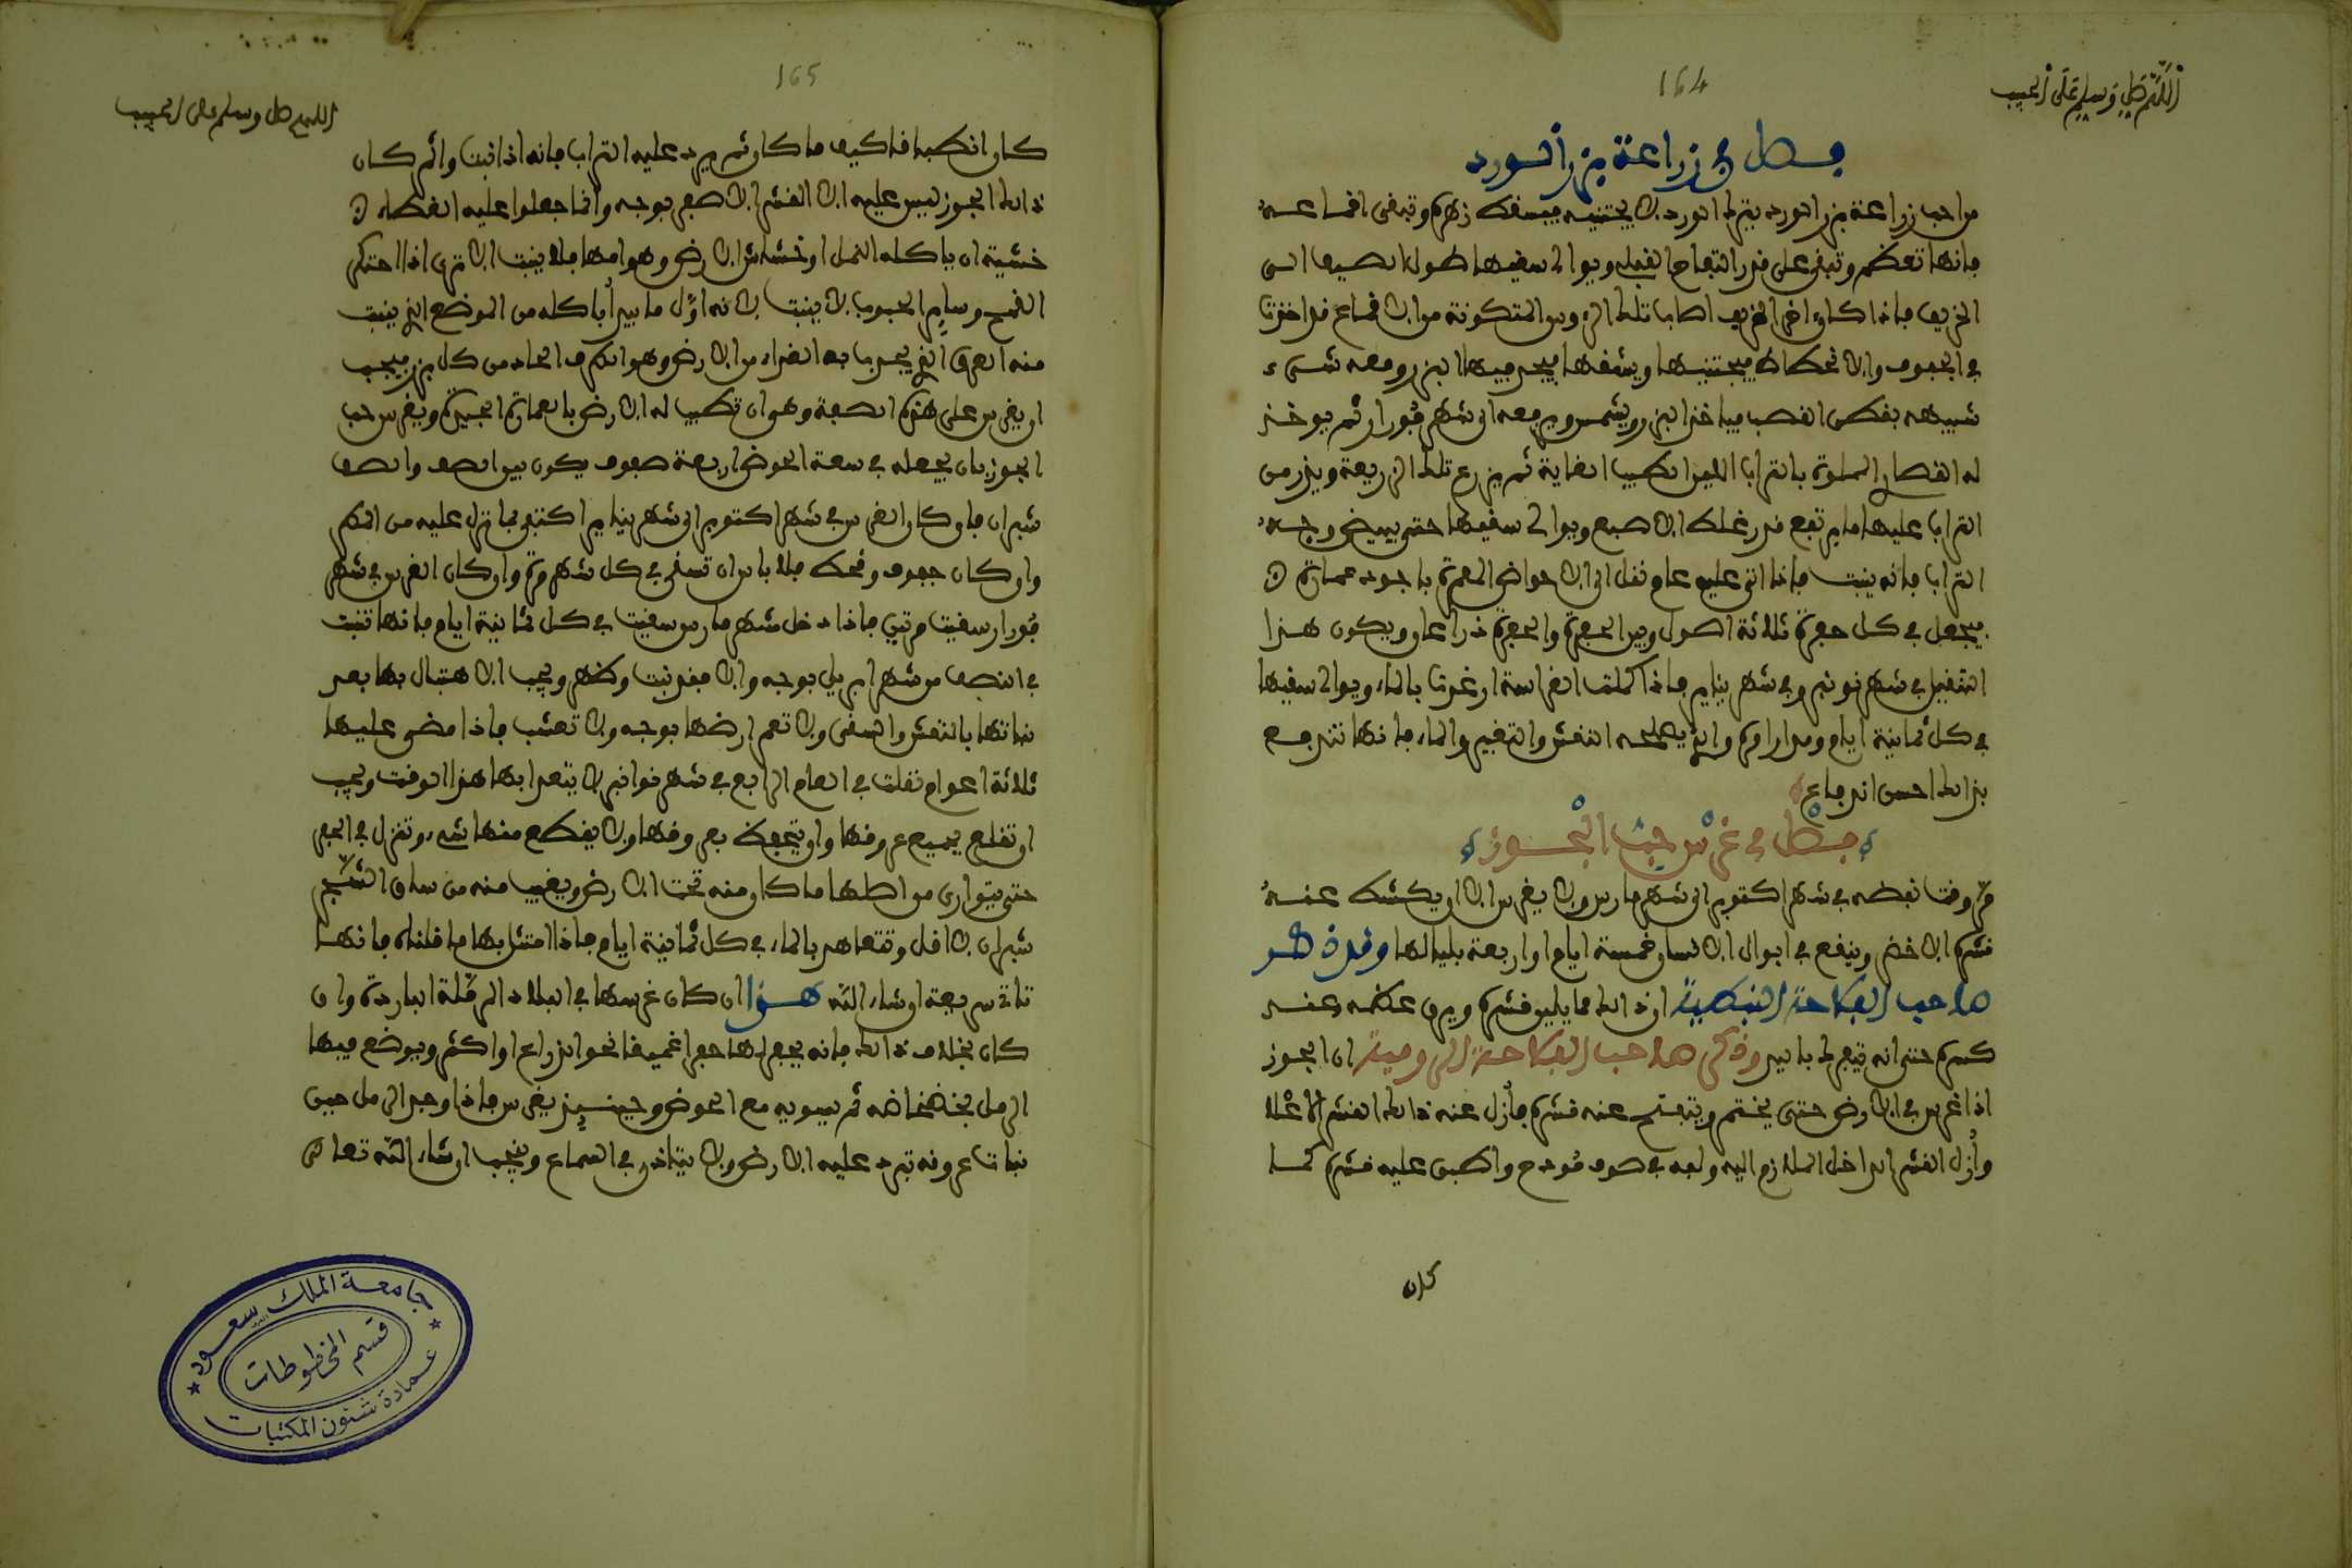 164
اللهم صل وسلم على الحبيب
فصل في زراعة بزر الورد
من احب زراعة بزر الورد يترك الورد لا يجتنيه فيسقط زهره وتبقى اقماعه
فانها تعظم وتبقى على قدر التفاح ويوالى سقيها طول الصيف الى
الخريف فاذا كان اخر الخريف اصاب تلك الروس المتكونة من الاقماع قد اخذت
في الجفوف والانحطاط فيجتنيها ويشقها فيجد فيها البزر ومعه شيء
شبيه بقطن القصب فياخذ البزر ويشمس ويرفعه الى شهر فورار ثم يوخذ
له القصار المملوة بالتراب اللين الطيب الغاية ثم يزرع تلك الزريعة ويذر من
التراب عليها ما يرتفع قدر غلظ الاصبع ويوالى سقيها حتى يبيض وجه
التراب فانه ينبت فاذا اتى عليه عام نقل الى الاحواض المعمرة باجود عمارة
فيجعل في كل حفرة ثلاثة اصول وبين الحفرة والحفرة ذراعان ويكون هذا
التنقيل في شهر نونبر وفي شهر يناير فاذا كملت الغراسة ارغوت بالماء ويوالى سقيها
في كل ثمانية ايام ومدار امره والذي يصلحه النقش والتقيم والماء فانها تندفع
بذالك احسن اندفاع
فصل في غرس حب الجوز
من وقت نفضه في شهر اكتوبر الى شهر مارس ولا يغرس الا ان يكشط عنه
قشره الاخضر وينقع في ابوال الانسان خمسة ايام او اربعة بلياليها وقد ذكر
صاحب الفلاحة النبطية ان ذالك مما يلين قشره ويرق عظمه عند
كسره حتى انه يتفرك باليد وذكر صاحب الفلاحة الرومية ان الجوز
اذا غرس في الارض حتى يختم ويتفتح عنه قشره فأزل عنه ذالك القشر الاعلا
وأزل القشر الداخل الملازم اليه ولفه في صوف مودح واطبق عليه قشره كما
كان
165
اللهم صل وسلم على الحبيب
كان انطباقا كيف ما كان ثم يرد عليه التراب فانه اذا نبت واثمر كان
ذالك الجوز ليس عليه الا القشر الاصفر بوجه وانما جعلوا عليه الغطاء
خشية ان ياكله النمل او خشاش الارض وهوامها فلا ينبت الا ترى اذا احتكر
القمح وساير الحبوب لا ينبت لانه اول ما يبدأ باكله من الموضع الذي ينبت
منه العرق الذي يجذب به الغذاء من الارض وهو الطرف الحاد من كل بزر فيجب
ان يغرس على هذه الصفة وهو ان تطيب له الارض بالعمارة الجيدة ويغرس حب
الجوز بان يجعله في سعة الحوض اربعة صفوف يكون بين الصف والصف
شبران فان كان الغرس في شهر اكتوبر الى شهر يناير اكتفى بما نزل عليه من المطر
وان كان جفوف وقحط فلا باس ان تسقى في كل شهر مرة وان كان الغرس في شهر
فورار سقيت مرتين فاذا دخل شهر مارس سقيت في كل ثمانية ايام فانها تنبت
في النصف من شهر ابريل بوجه والا فقد نبت وظهر ويجب الاهتبال بها بعد
نباتها بالنقش والسقى ولا تعم ارضها بوجه ولا تعشب فاذا مضى عليها
ثلاثة اعوام نقلت في العام الرابع في شهر نوانبر لا يتعدا بها هذا الوقت ويجب
ان تقلع بجميع عروقها وان يتحفظ بعروقها ولا يقطع منها شيء وتنزل في الحفر
حتى يتوارى من اصلها ما كان منه تحت الارض ويغيب منه من ساق الشجر
شبران لا اقل وتتعاهد بالماء في كل ثمانية ايام فاذا امتثل بها ما قلناه فانها
تاتي سريعة ان شاء الله هذا ان كان غرسها في البلاد الرملة الباردة وان
كان بخلاف ذالك فانه يحفر لها حفرا عميقا نحوا ذراع او اكثر ويوضع فيها
الرمل ثم يسويه مع الحوض وحينئذ يغرس فاذا وجد الرمل حين
نبات عروقه تبرد عليه الارض ولا يتاذى في السماع وينجب ان شاء الله تعالى
جامعة الملك سعود
قسم المخطوطات
عمادة شئون المكتبات